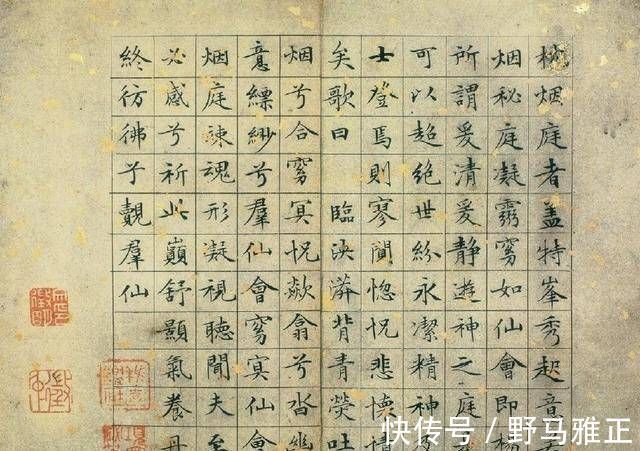 烟庭者盖特峯秀起
烟秘庭凝窅如仙會即
所謂爰清爰靜遊神之庭
可以超絕世紛永潔精神
士登焉則寥闃惚怳悲懷
矣歌曰 臨泱漭背青熒吐
烟兮合窅冥怳歘翕兮沓幽
意縹緲兮羣仙會窅冥仙會
烟庭竦魂形凝視聽聞夫至
必感兮祈此巔舒顥氣養丹
終彷彿子覿羣仙
快传号/野马雅正